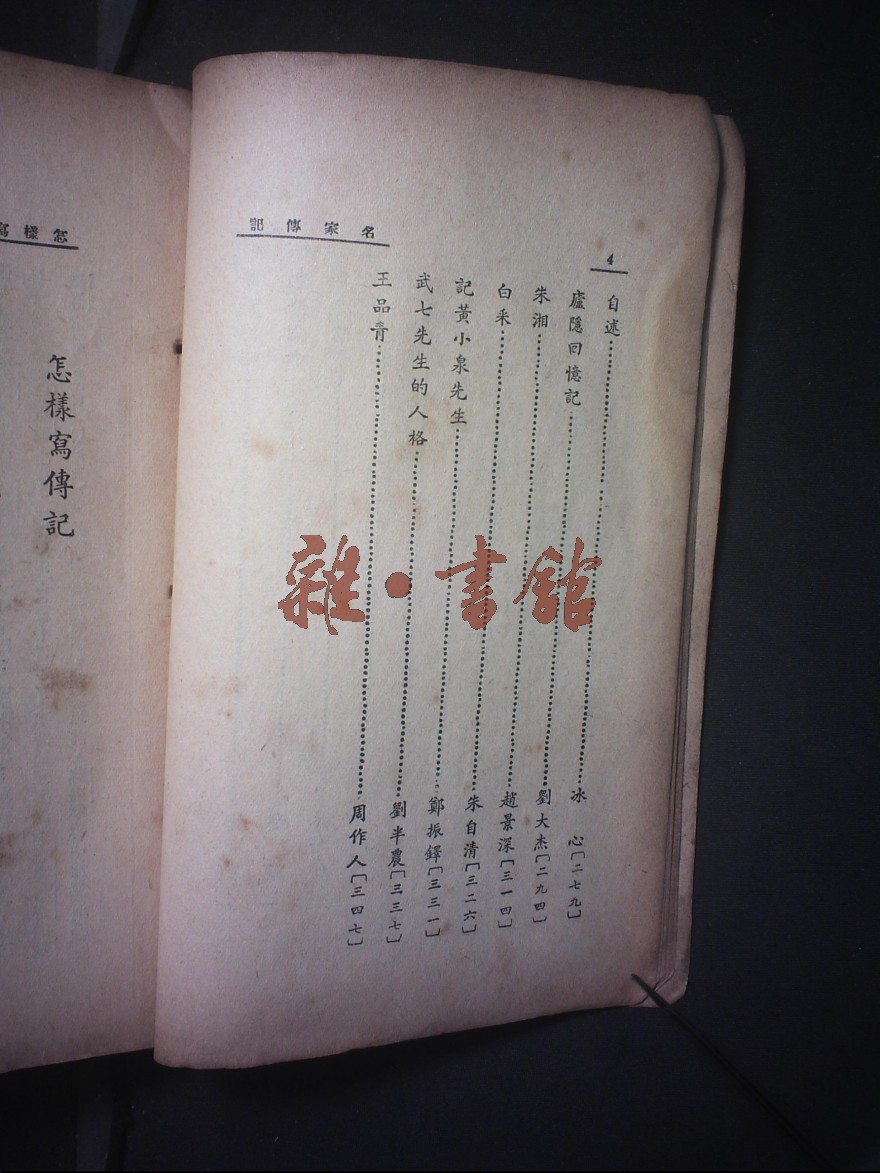 名家傳記
4
自述……冰 心〔二七九〕
廬隱回憶記……劉大杰〔二九四〕
朱湘……趙景深〔三一四〕
白采……朱自清〔三二六〕
記黃小泉先生……鄭振鐸〔三三一〕
武七先生的人格……劉半農〔三三七〕
王品青……周作人〔三四七〕
怎樣寫
怎樣寫傳記
雜·書館